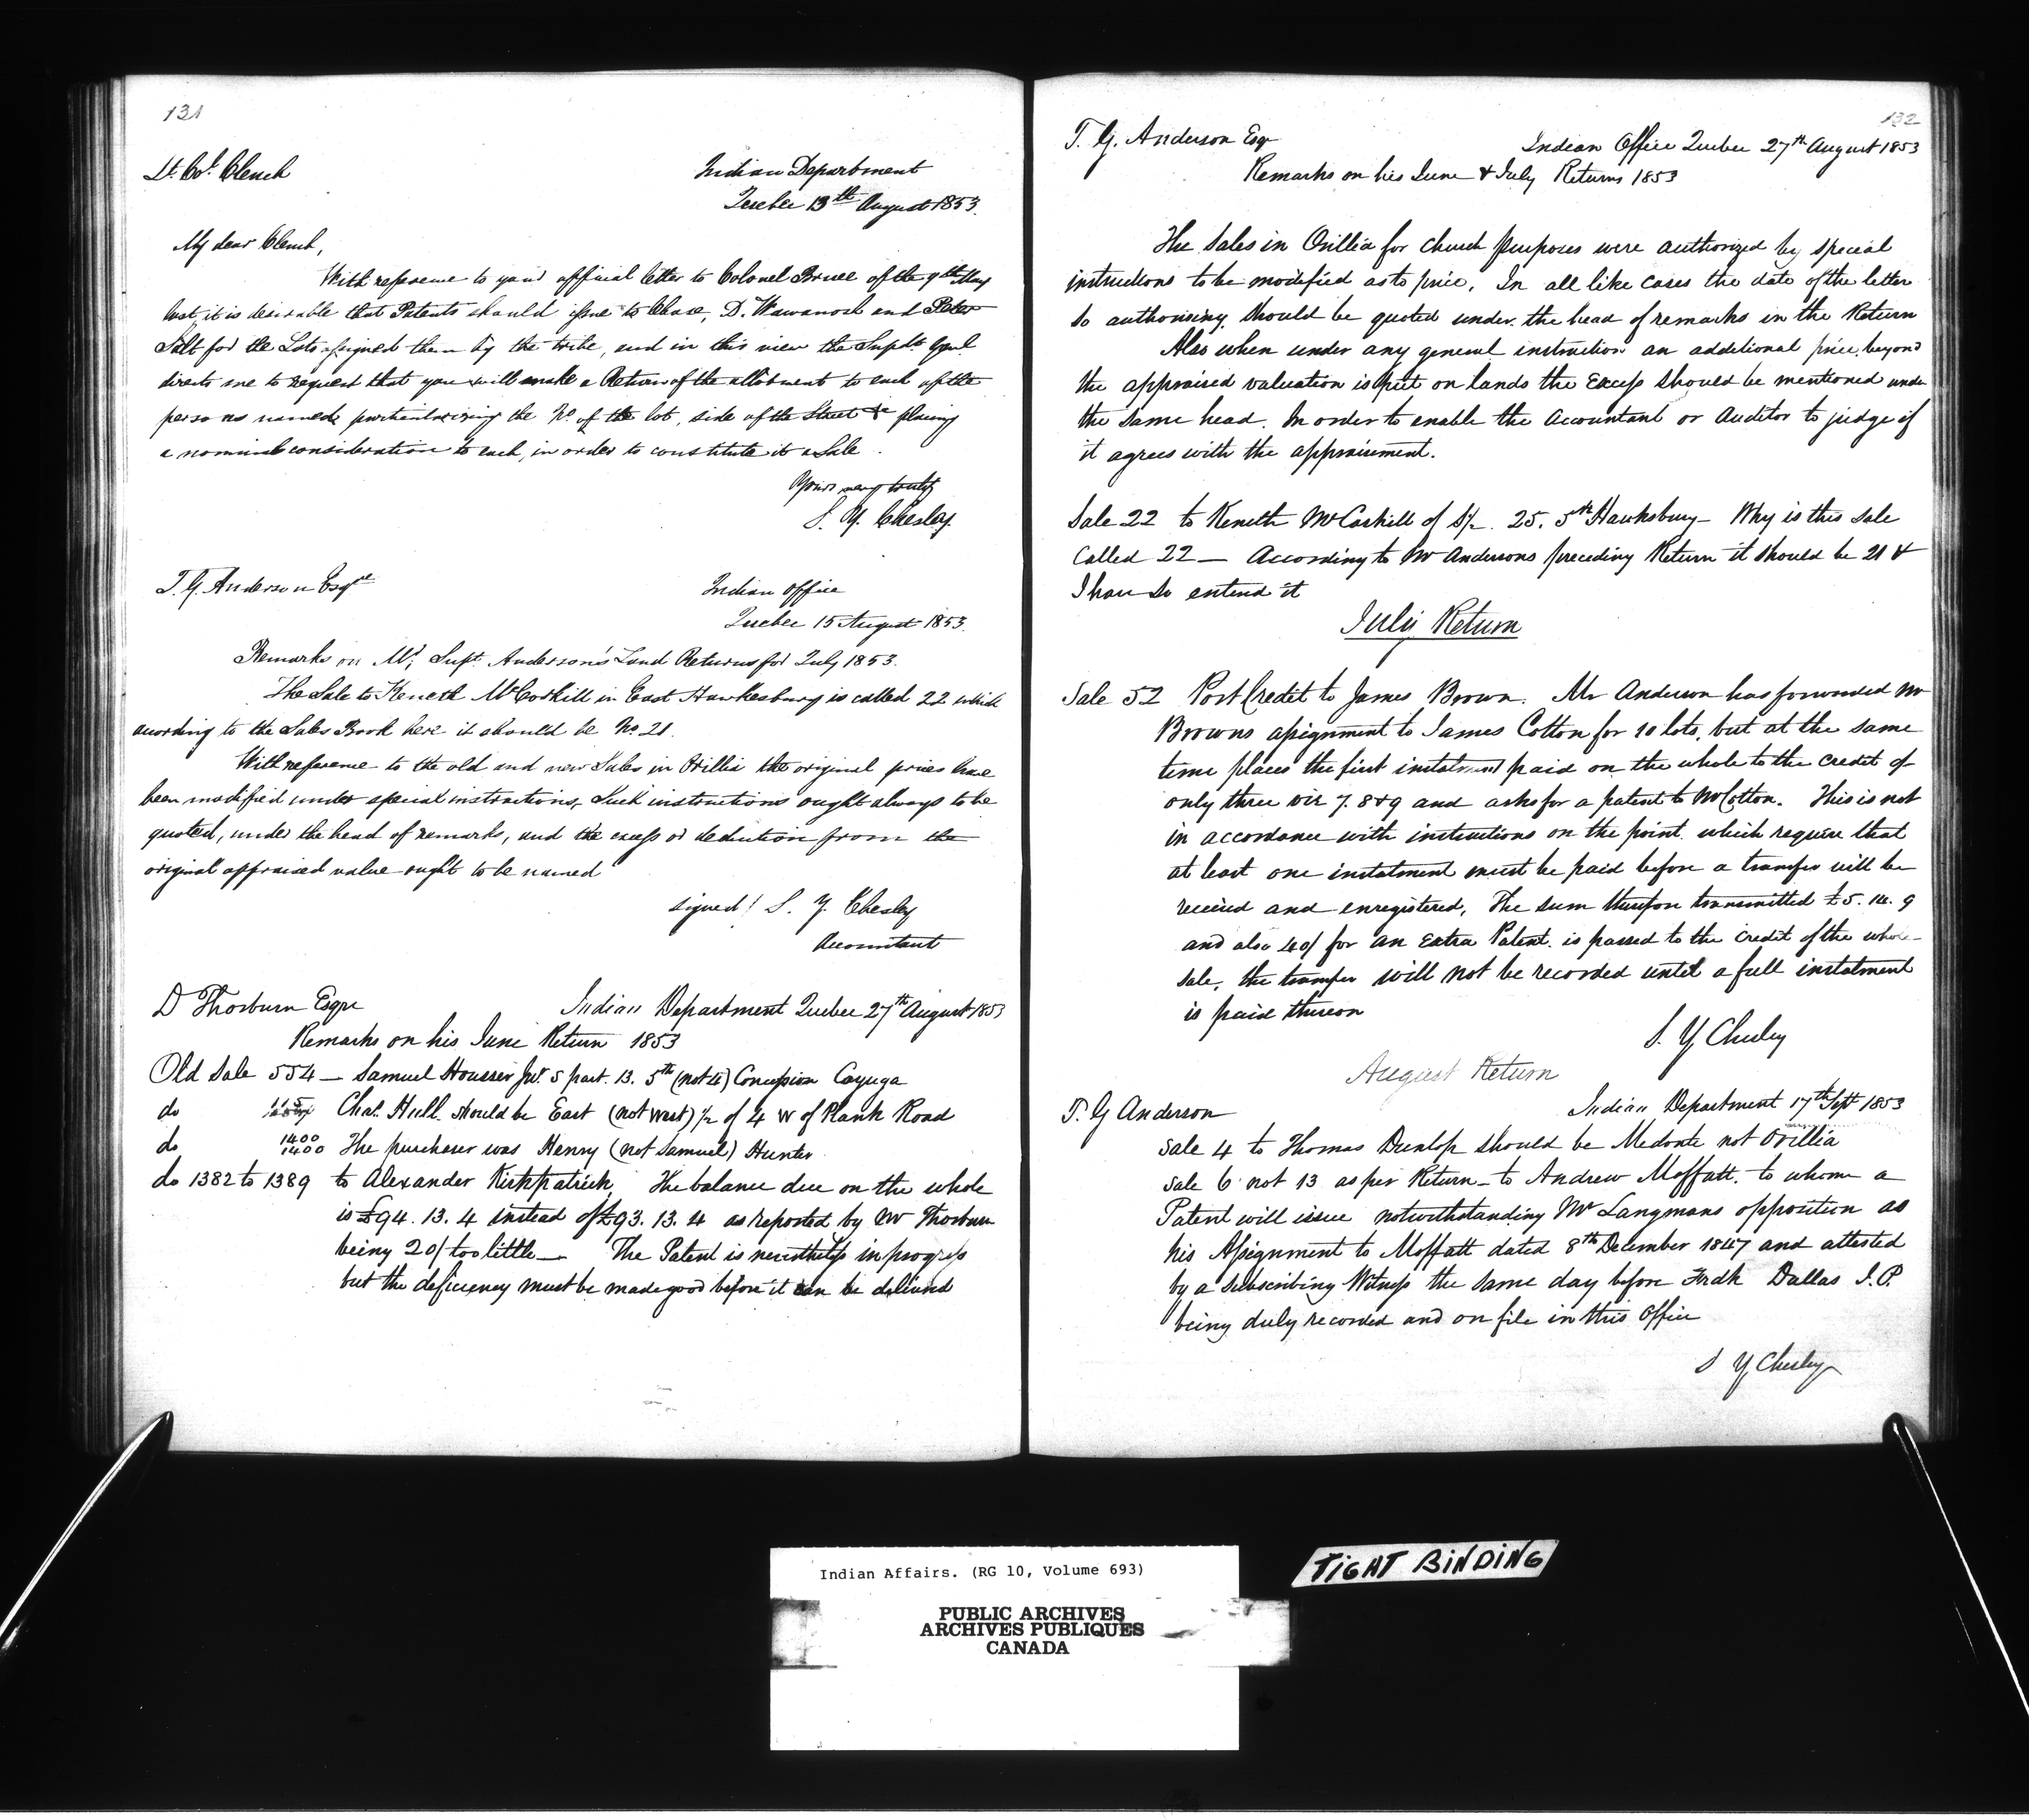 131
Lt. Col. Clench
Indian Department
Quebec 13th August 1853.
My dear Clench,
With reference to your official letter to Colonel Bruce of the 9th May
last, it is desirable that Patents should issue to Chase, D. Wawanosh and Peter
Salt for the Lots assigned them by the tribe, and in this view the Supdt Genl
directs me to request that you will make a Return of the allotment to each of the
persons named, particularizing the No. of the lot, side of the Street &c placing
a nominal consideration to each, in order to constitute it a Sale.
Yours very truly
S. Y. Chesley
T. G. Anderson Esqre
Indian Office
Quebec 15 August 1853.
Remarks on Mr. Supt. Anderson's Land Returns for July 1853.
The Sale to Keneth McCoskill in East Hawkesbury is called 22 which
acording to the Sales Book here it should be No. 21.
With reference to the old and new Sales in Orillia the original prices have
been modified under special instructions, Such instructions ought always to be
quoted, under the head of remarks, and the excess or deduction from the
original appraised value ought to be named
signed/ S. Y. Chesley
Accountant
D Thorburn Esqre
Indian Department Quebec 27th August 1853
Remarks on his June Return 1853
Old Sale 554 — Samuel Housser Jur. S part. 13. 5th (not 4) Concession Cayuga
do 115 Chas. Hull should be East (not West) ½ of 4 W of Plank Road
do 1400 1400 The purchaser was Henry (not Samuel) Hunter
do 1382 to 1389 to Alexander Kirkpatrick, The balance due on the whole
is £94. 13. 4 instead of £93. 13. 4 as reported by Mr Thorburn
being 20/ too little — The Patent is nevertheless in progress
but the deficiency must be made good before it can be delivered
132
T. G. Anderson Esqr
Indian Office Quebec 27th August 1853
Remarks on his June & July Returns 1853
The Sales in Orillia for Church purposes were authorized by special
instructions to be modified as to price, In all like cases the date of the letter
so authorising, should be quoted under the head of remarks in the Return
Also when under any general instruction an additional price, beyond
the appraised valuation is put on lands the Excess should be mentioned under
the same head. In order to enable the Accountant or Auditor to judge if
it agrees with the appraisement.
Sale 22 to Keneth McCaskill of S½. 25. 5th Hawksbury — Why is this sale
called 22 — According to Mr Andersons preceding Return it should be 21 &
I have so entered it
July Return
Sale 52 Port Credit to James Brown. Mr Anderson has forwarded Mr
Browns assignment to James Cotton for 10 lots, but at the same
time places the first instalment paid on the whole to the credit of
only three viz 7. 8 & 9 and asks for a patent to Mr Cotton. This is not
in accordance with instructions on the point which require that
at least one instalment must be paid before a transfer will be
received and enregistered, The sum therefore transmitted £5. 14. 9
and also 40/ for an Extra Patent is passed to the credit of the whole
sale, the transfer will not be recorded until a full instalment
is paid thereon
S. Y Chesley
August Return
T. G Anderson
Indian Department 17th Sept 1853
Sale 4 to Thomas Dunlop should be Medonte not Orillia
Sale 6 not 13 as per Return — to Andrew Moffatt. to whom a
Patent will issue notwithstanding Mr Langmans opposition as
his Assignment to Moffatt dated 8th December 1847 and attested
by a subscribing Witness the same day before Fredk Dallas J. P.
being duly recorded and on file in this Office
S Y Chesley
Indian Affairs. (RG 10, Volume 693)
PUBLIC ARCHIVES
ARCHIVES PUBLIQUES
CANADA
TIGHT BINDING